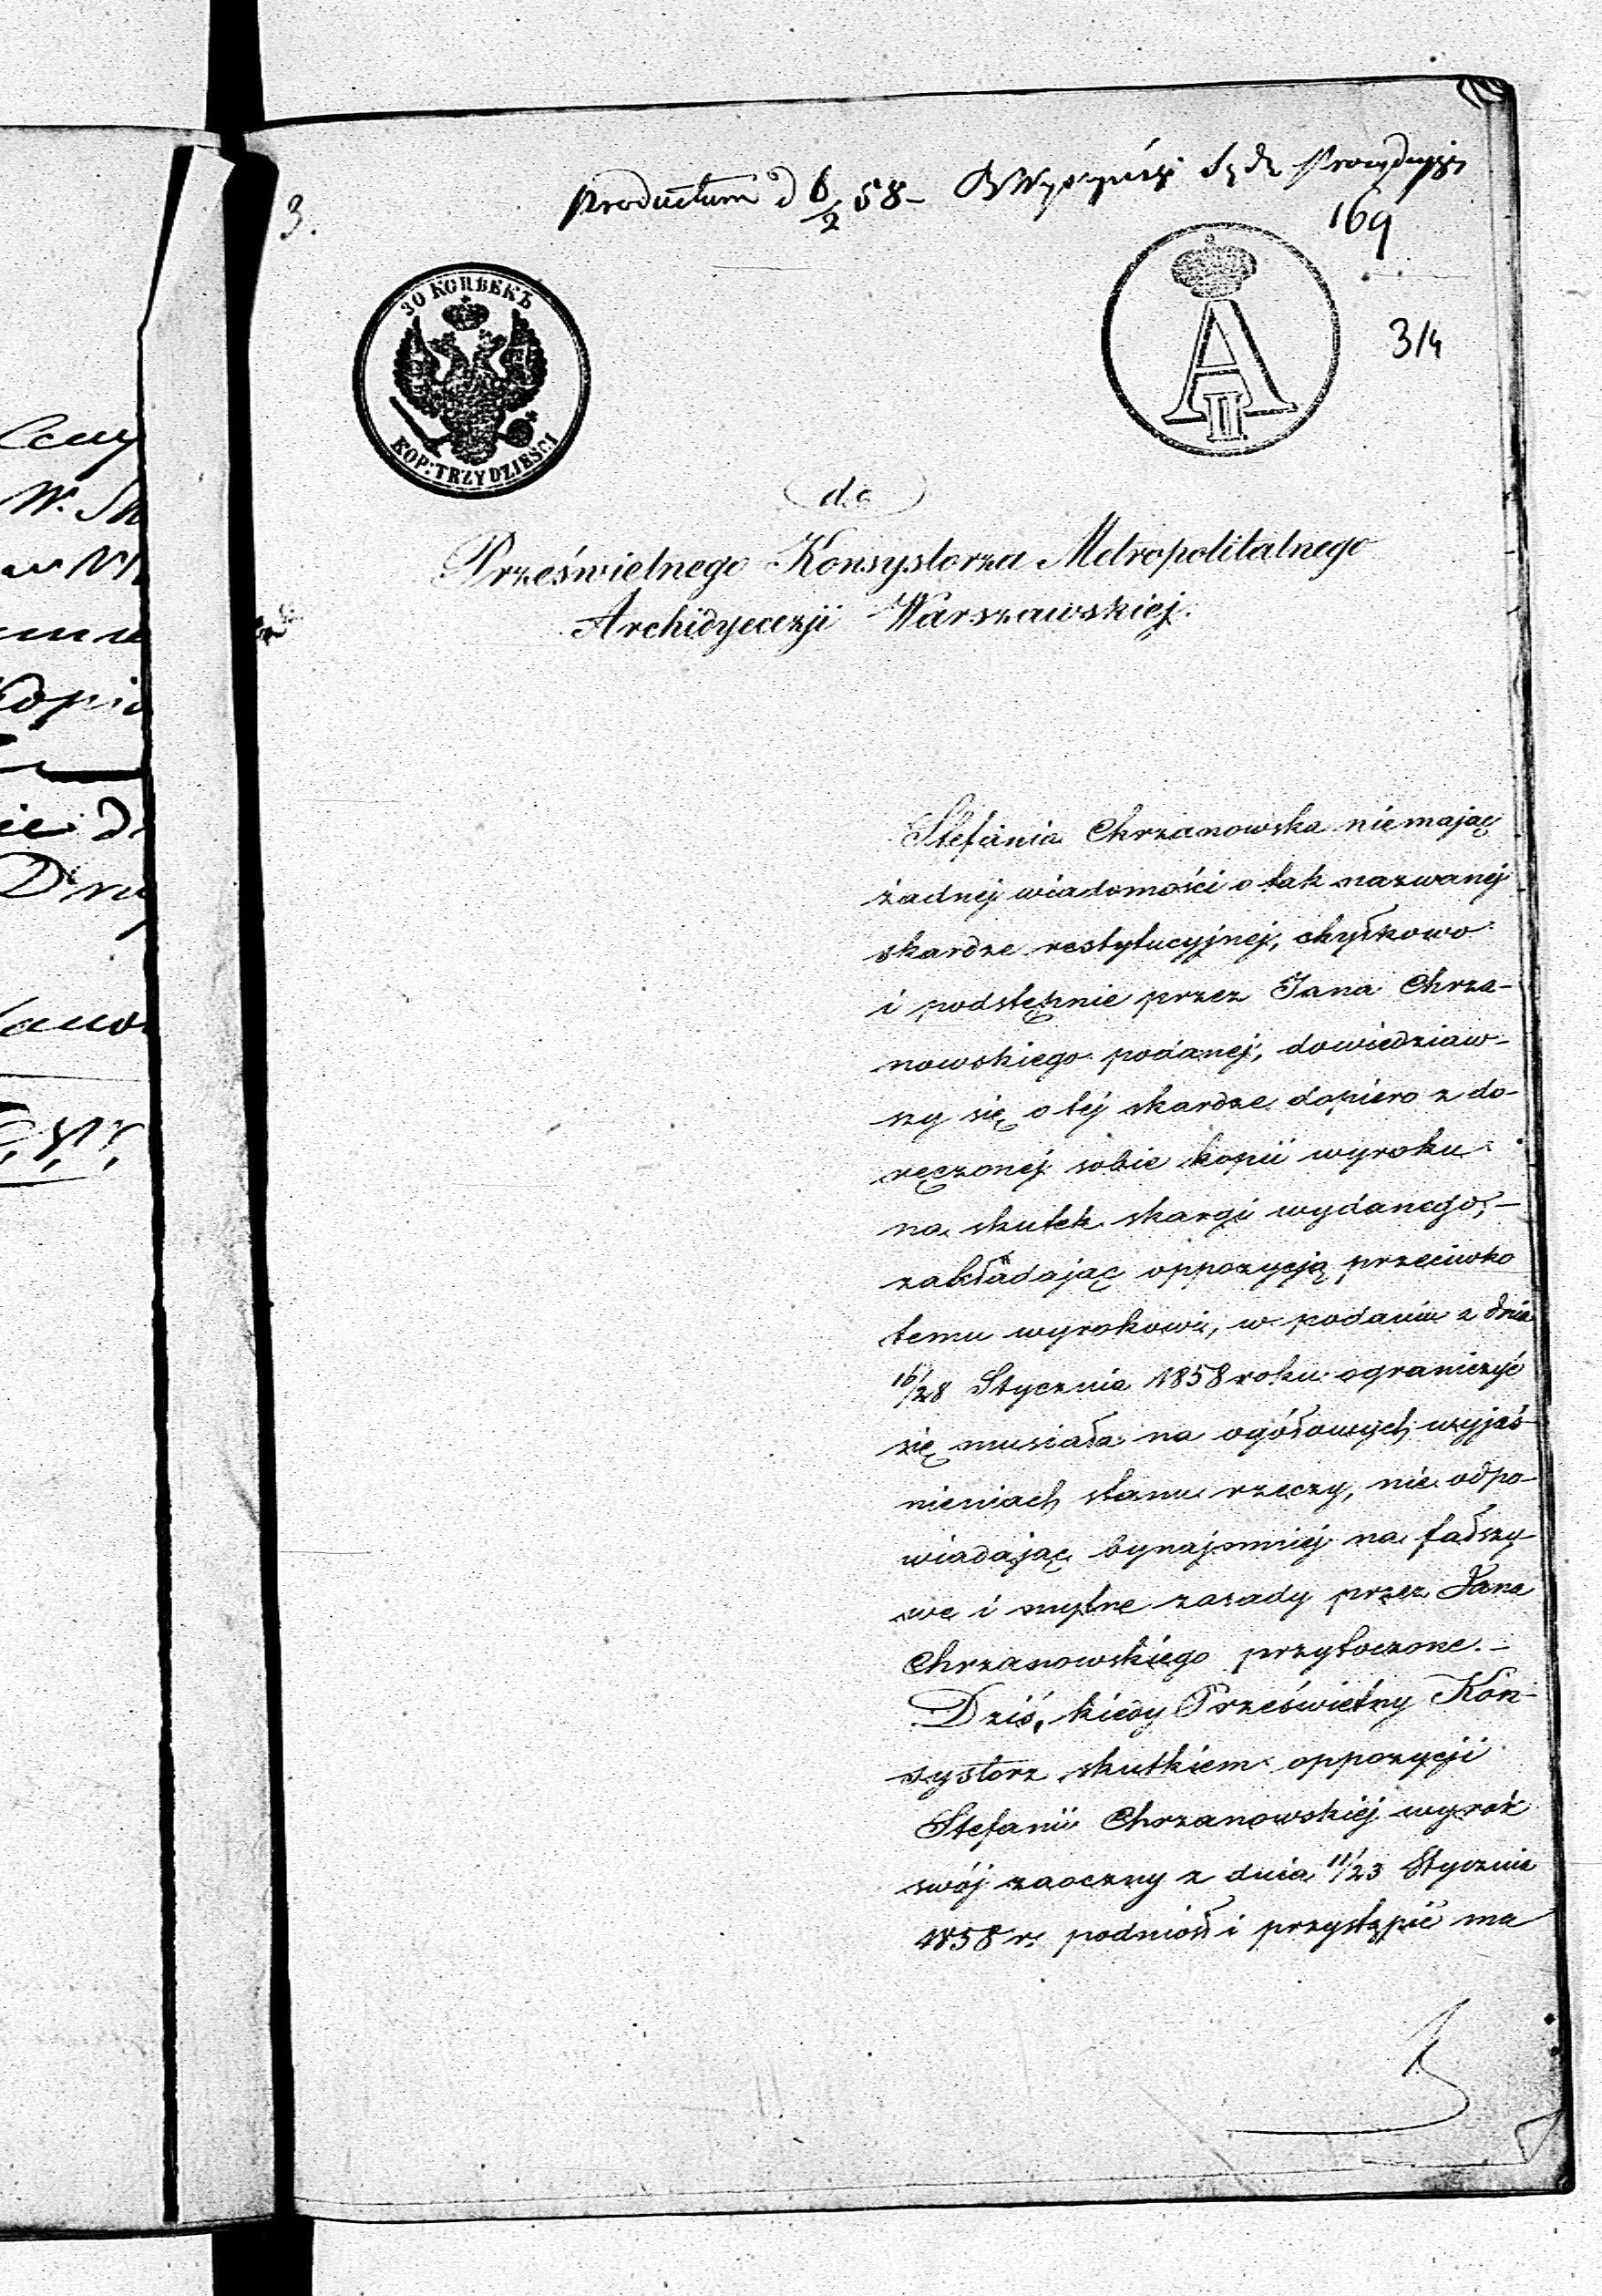 3.
Productum d 6/2 58 –
169
3/4
30 КОПѢЕКЪ
KOP: TRZYDZIEŚCI
A II
do
Prześwietnego Konsystorza Metropolitalnego
Archidyecezji Warszawskiej.
Stefania Chrzanowska niemając
żadnej wiadomości o tak nazwanej
skardze restytucyjnej, chyłkowo
i podstępnie przez Jana Chrza-
nowskiego podanej, dowiedziaw-
szy się o tej skardze dopiero z do-
ręczonej sobie kopii wyroku
na skutek skargi wydanego, –
zakładając oppozycją przeciwko
temu wyrokowi, w podaniu z dnia
16/28 Stycznia 1858 roku ograniczyć
się musiała na ogółowych wyjaś-
nieniach stanu rzeczy, nie odpo-
wiadając bynajmniej na fałszy-
we i mylne zasady przez Jana
Chrzanowskiego przytoczone. –
Dziś, kiedy Prześwietny Kon-
systorz skutkiem oppozycji
Stefanii Chrzanowskiej wyrok
swój zaoczny z dnia 11/23 Stycznia
1858 r. podniósł i przystąpić ma